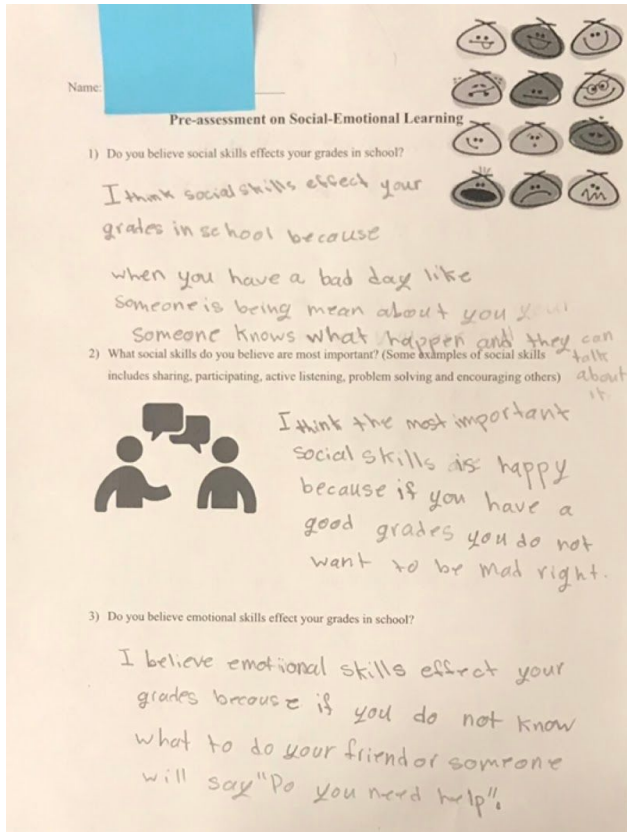 Name:
Pre-assessment on Social-Emotional Learning
1) Do you believe social skills effects your grades in school?
I think social skills effect your
grades in school because
when you have a bad day like
someone is being mean about you
someone knows what happen and they can
talk
about
it.
2) What social skills do you believe are most important? (Some examples of social skills
includes sharing, participating, active listening, problem solving and encouraging others)
I think the most important
social skills is happy
because if you have a
good grades you do not
want to be mad right.
3) Do you believe emotional skills effect your grades in school?
I believe emotional skills effect your
grades because if you do not know
what to do your friend or someone
will say "Do you need help".